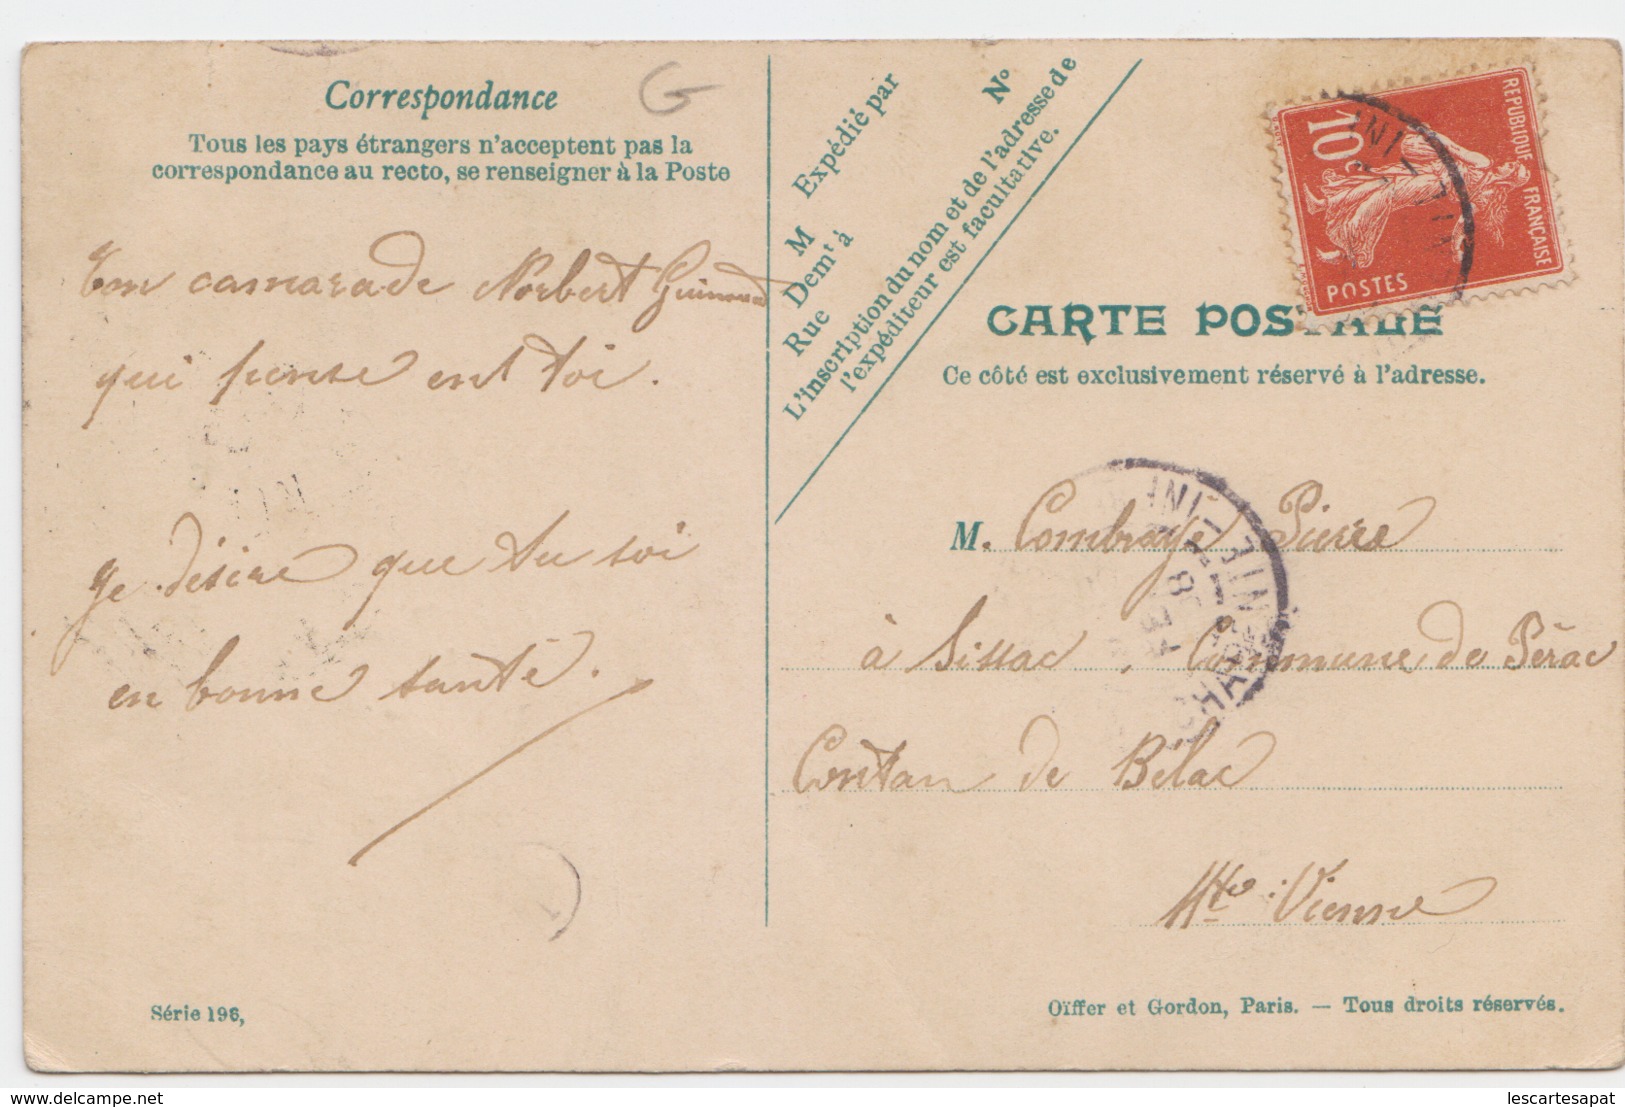 Correspondance
Tous les pays étrangers n'acceptent pas la
correspondance au recto, se renseigner à la Poste
Ton camarade Norbert
qui pense ent toi.
Je désire que tu soi
en bonne santé.
Série 196,
M Expédié par
M Demt à
Rue Nº
L'inscription du nom et de l'adresse de
l'expéditeur est facultative.
REPUBLIQUE FRANÇAISE
10c
POSTES
CARTE POSTALE
Ce côté est exclusivement réservé à l'adresse.
M. Combrayé Pierre
à Sissac, Commune de Pérac
Contan de Bélac
Hte Vienne
Oïffer et Gordon, Paris. — Tous droits réservés.
delcampe.net
lescartesapat